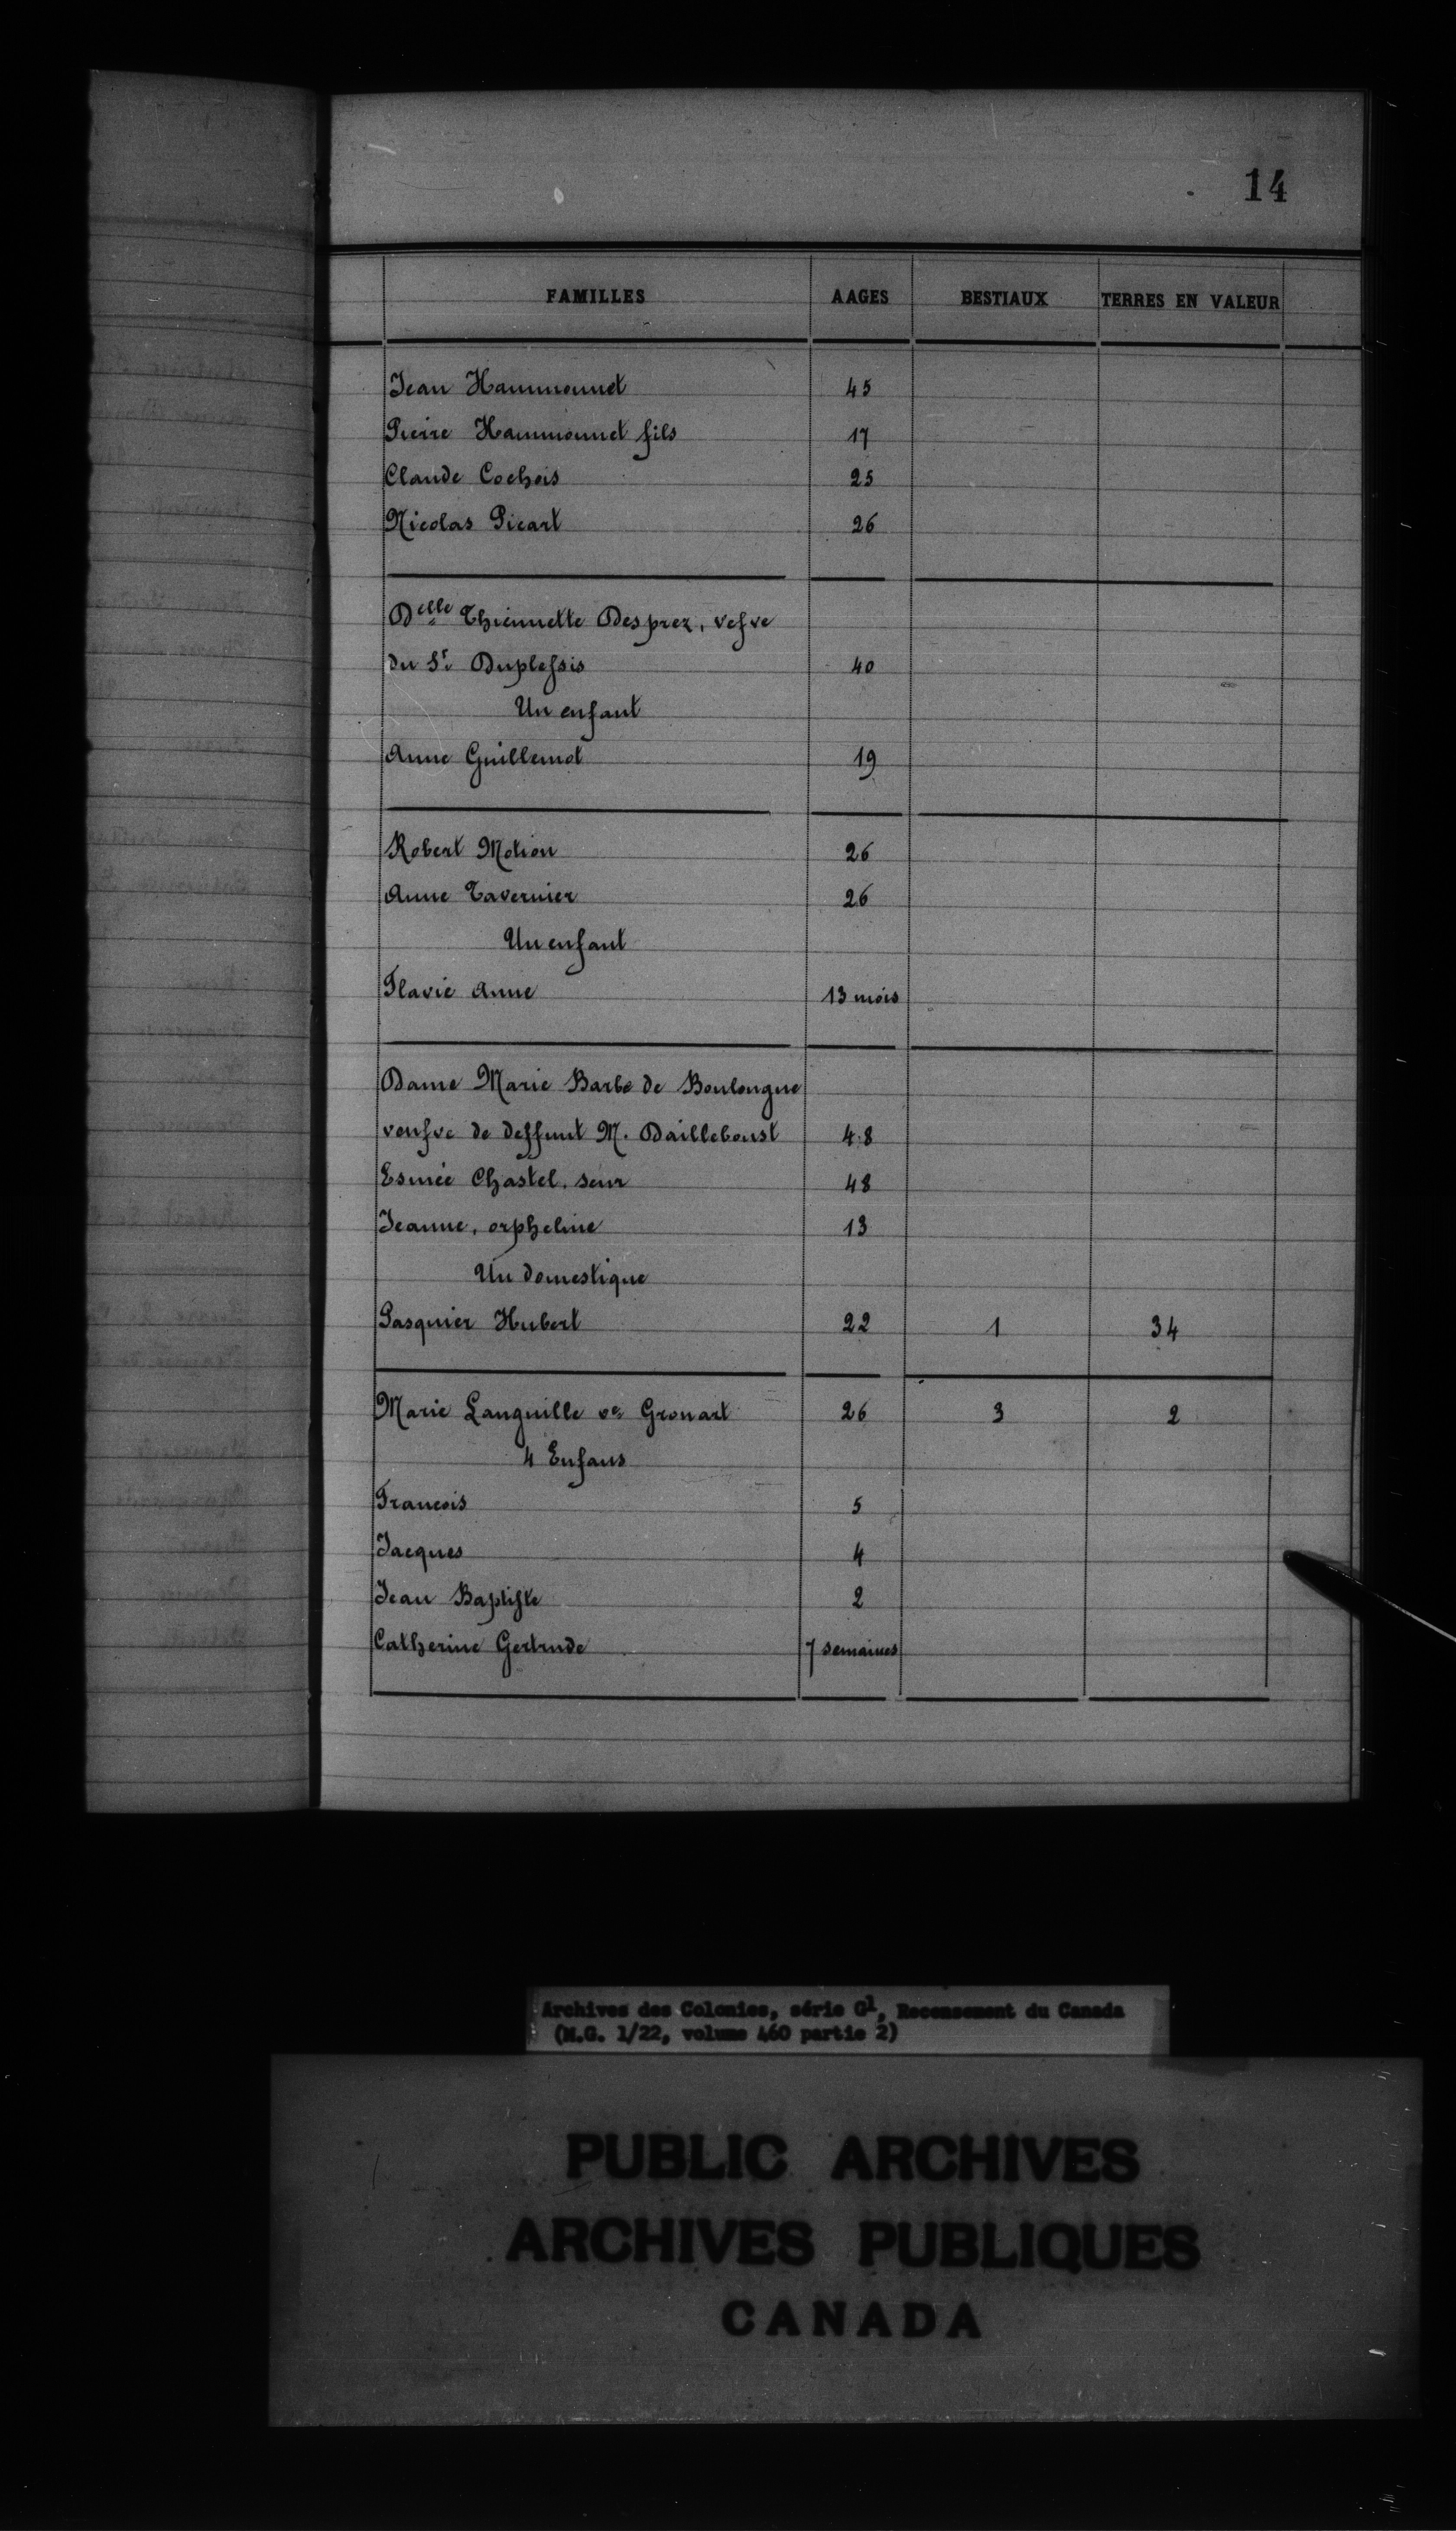 14
FAMILLES AAGES BESTIAUX TERRES EN VALEUR
Jean Hammonnet 45
Pierre Hammonnet fils 17
Claude Cochois 25
Nicolas Picart 26
Delle Thiennette Desprez, vefve
du Sr Duplessis 40
Un enfant
Anne Guillemot 19
Robert Motion 26
Anne Tavernier 26
Un enfant
Flavie Anne 13 mois
Dame Marie Barbe de Boulongne
veufve de deffunt M. Dailleboust 48
Esmée Chastel, seur 48
Jeanne, orpheline 13
Un domestique
Pasquier Hubert 22 1 34
Marie Languille ve Grouart 26 3 2
4 Enfans
Francois 5
Jacques 4
Jean Baptiste 2
Catherine Gertrude 7 semaines
Archives des Colonies, série G1, Recensement du Canada
(M.G. 1/22, volume 460 partie 2)
PUBLIC ARCHIVES
ARCHIVES PUBLIQUES
CANADA